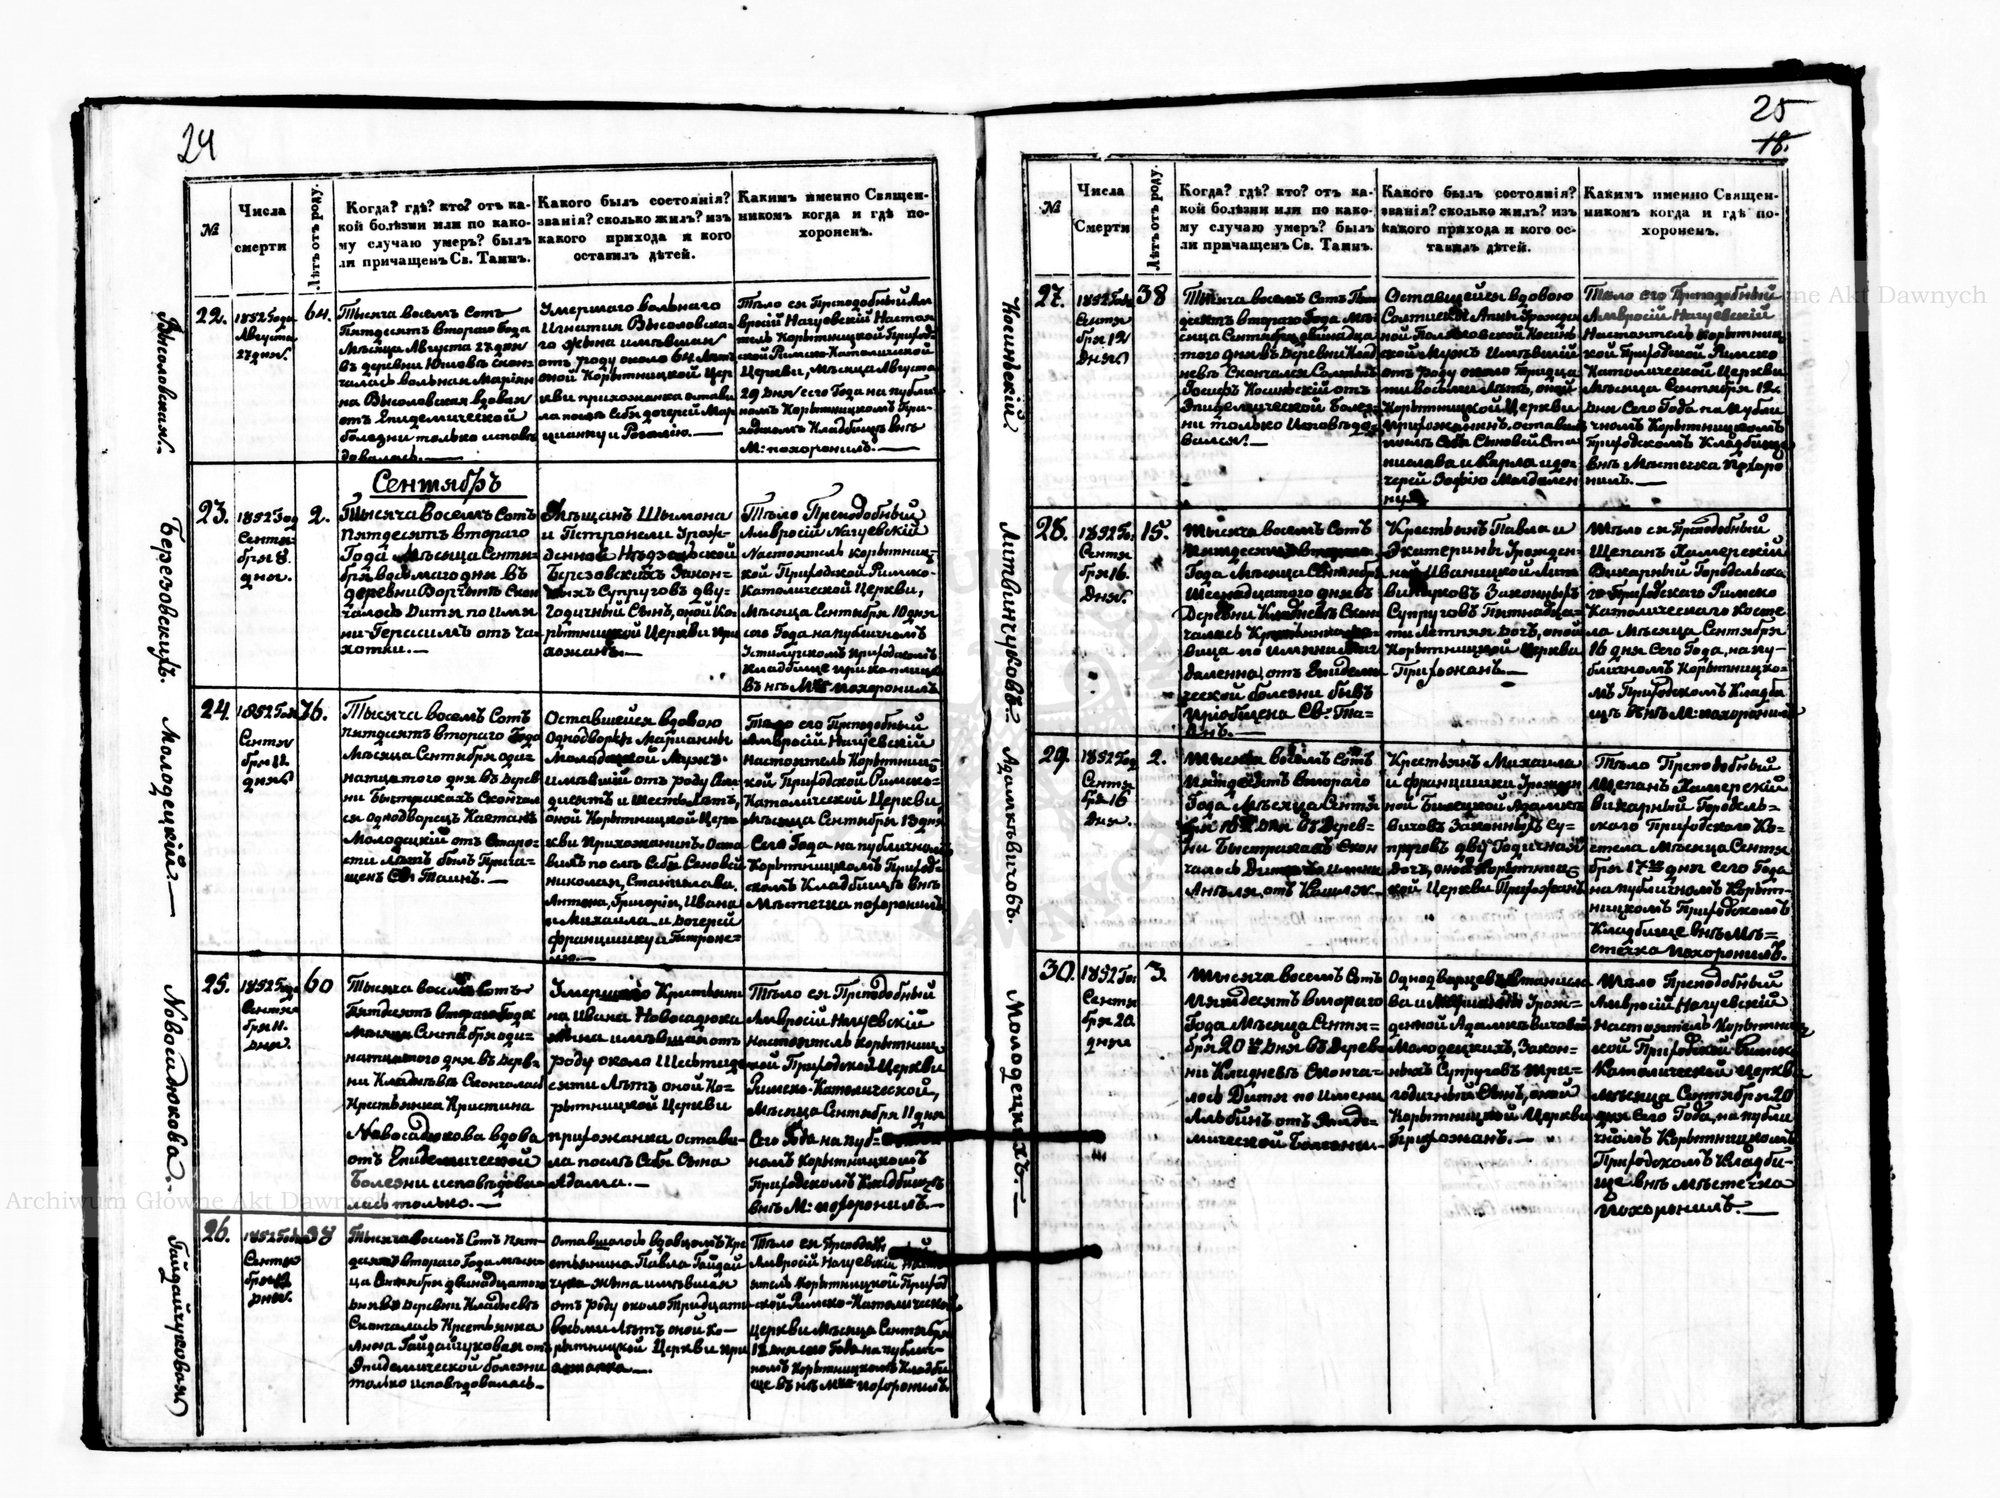 24
№
Числа
смерти
Лѣтъ отъ роду.
Когда? гдѣ? кто? отъ ка-
кой болѣзни или по како-
му случаю умеръ? былъ
ли причащенъ Св. Таинъ.
Какого былъ состоянія?
званія? сколько жилъ? изъ
какого прихода и кого
оставилъ дѣтей.
Какимъ именно Священ-
никомъ когда и гдѣ по-
хороненъ.
Высоловская.
22.
1852 Года
Августа
27 дня.
64.
Тысяча восемъ Сотъ
Пятдесятъ втораго Года
Мѣсяца Августа 27 дня
въ деревни
скон-
чалась вольная Маріян
на Высоловская вдова
отъ Епидемической
болезни только исповѣ
довалась.
Умершаго вольнаго
Игнатія Высоловска-
го жена имѣвшая
отъ роду около 64 Лѣтъ
оной Корытницкой Цер
кви прихожанка остави
ла послѣ себя дочерей Мар
цианну и Розалію.
Тѣло ея Преподобный Ам
вросій Нагуевскій Настоя
тель Корытницкой Приход
ской Римско-Католической
Церкви, Мѣсяца Августа
29 дня сего Года на публи
чномъ Корытницкомъ При-
ходскомъ Кладбищѣ внѣ
М: похоронилъ.
Сентябрь
Березовскихъ.
23.
1852 Год
Сентя-
бря 8.
дня.
2.
Тысяча восемъ Сотъ
пятдесятъ втораго
Года Мѣсяца Сентя-
бря восьмаго дня въ
деревни Ворчинъ Скон
чалось Дитя по имя
ни Герасимъ отъ ча-
хотки.
Мѣщанъ Шымона
и Петронели Урож-
денной
Березовскихъ Закон-
ныхъ Супруговъ дву-
годичный Сынъ, оной Ко-
рытницкой Церкви при
хожанъ.
Тѣло Преподобный
Амвросій Нагуевскій
Настоятель Корытниц-
кой Приходской Римско-
Католической Церкви,
Мѣсяца Сентября 10 дня
сего Года на публичномъ
Устилугскомъ Приходскомъ
Кладбище
внѣ М: похоронилъ
Молодецкій.
24.
1852 Года
Сентя
бря 11
дня
76.
Тысяча восемъ Сотъ
пятдесятъ втораго Года
Мѣсяца Сентября оди-
натцатого дня въ Дерев
ни Быстракахъ Скончал
ся однодворецъ Каетанъ
Молодецкій отъ Старо-
сти Лѣтъ былъ Прича-
щенъ Св. Таинъ.
Оставшейся вдовою
Однодворки Марианны
Молодецкой Мужъ.
имѣвшій отъ роду Сем
дисятъ и шесть Лѣтъ,
оной Корытницкой Цер
кви Прихожанинъ Оста
вилъ послѣ Себя Сыновей
Николая, Станислава.
Антона, Григорія, Ивана
и Михаила и дочерей
францишку и Петроне-
лю.
Тѣло его Преподобный
Амвросій Нагуевскій
настоятель Корытниц-
кой Приходской Римско-
Католической Церкви,
Мѣсяца Сентября 13 дня
Сего Года на публичномъ
Корытницкомъ Приход-
скомъ Кладбищѣ внѣ
Мѣстечка похоронилъ.
Новосадюкова.
25.
1852 Года
Сентя
бря 11.
дня.
60
Тысяча восемъ сотъ
Пятдсятъ втораго Года
Мѣсяца Сентября оди-
натцатого дня въ Дерев-
ни Кладневѣ Скончалась
Крестьянка Кристина
Новосадюкова вдова
отъ Епидемической
Болезни исповѣдова-
лась только.
Умершаго Крестьяни
на Ивана Новосадюка
жена имѣвшая отъ
роду около Шестиде
сяти Лѣтъ оной Ко-
рытницкой Церкви
прихожанка остави-
ла послѣ Себя Сына
Адама.
Тѣло ея Преподобный
Амвросій Нагуевскій
настоятель Корытниц
кой Приходской Церкви
Римско-Католической,
Мѣсяца Сентября 11 дня
Сего Года на публ-
номъ Корытницкомъ
Приходскомъ Кладбищѣ
внѣ М: похоронилъ.
Гайдайчуковая
26.
1852 Года
Сентя
бря 12
дня.
38
Тысяча восемъ Сотъ пят-
десятъ втораго Года мѣся-
ца Сентября двенадцатого
дня въ деревни Кладневѣ
Скончалась Крестьянка
Анна Гайдайчуковая отъ
Эпидемической болезни
только исповѣдовалась.
Оставшагося вдовцомъ Кре
стьянина Павла Гайдай
чука жена имѣвшая
отъ роду около Тридцати
восьми Лѣтъ оной Ко-
рытницкой Церкви при
хожанка.
Тѣло ея Преподобный
Амвросій Нагуевскій Насто
ятель Корытницкой Приход
ской Римско-Католической
Церкви Мѣсяца Сентября
12 дня сего Года на публич-
номъ Корытницкомъ Кладби
ще внѣ М: похоронилъ.
25
18.
№
Числа
Смерти
Лѣтъ отъ роду.
Когда? гдѣ? кто? отъ ка-
кой болѣзни или по како-
му случаю умеръ? былъ
ли причащенъ Св. Таинъ.
Какого былъ состоянія?
званія? сколько жилъ? изъ
какого прихода и кого ос-
тавилъ дѣтей.
Какимъ именно Священ-
никомъ когда и гдѣ по-
хороненъ.
Косинскій
27.
1852 Года
Сентя
бря 12
дня
38
Тысяча восемъ Сотъ Пят
десятъ втораго Года Мѣ-
сяца Сентября двенадца
того дня въ Деревни Клад
невѣ Скончался
Іосифъ Косинскій отъ
Эпидемической Болез-
ни только Исповѣдо-
вался.
Оставшейся вдовою
Анны Урожден
ной
Косин
ской Мужъ Имѣвшій
отъ роду около Тридца
ти восьми Лѣтъ, оной
Корытницкой Церкви
прихожанинъ, остави
лъ послѣ Себя Сыновей Ста
нислава и Карла и до-
черей Зофію Магдален
ну.
Тѣло его Преподобный
Амвросій Нагуевскій
Настоятель Корытниц
кой Приходской Римско
Католической Церкви
Мѣсяца Сентября 12
дня Сего Года на публи
чномъ Корытницкомъ
Приходскомъ Кладбище
внѣ Мѣстечка Похоро
нилъ.
Литвинчуковъ.
28.
1852 Го.
Сентя
бря 16.
Дня.
15.
Тысяча восемъ Сотъ
Пятдесятъ втораго
Года Мѣсяца Сентября
Шестнадцатого дня въ
Деревни Кладневѣ Скон-
чалась Крестьянка
вица по имяни Маг
далена, отъ Епидеми
ческой болезни бывъ
пріобщена Св. Та-
инъ.
Крестьянъ Павла и
Екатерины Урожден-
ной Иваницкой Лит
винчуковъ Законныхъ
Супруговъ Пятнадца-
ти Летняя дочь, оной
Корытницкой Церкви
Прихожанъ.
Тѣло ея Преподобный
Щепанъ Хамерскій
Викарный Городельска
го Приходского Римско
Католическаго Косте
ла Мѣсяца Сентября
16 дня Сего Года, на пу-
бличномъ Корытницко-
мъ Приходскомъ Кладби
щѣ внѣ М: похоронилъ
Адамкѣвичовъ.
29.
1852 Год
Сентя
бря 16
Дня.
2.
Тысяча восемъ Сотъ
Пятдесятъ втораго
Года Мѣсяца Сентя
бря 16 Дня въ Дерев-
ни Быстракахъ Скон
чалось Дитя по имени
Ангеля, отъ Кашля.
Крестьянъ Михаила
и францишки Урожден
ной Билецкой Адамкѣ
вичовъ Законныхъ Су-
пруговъ двух Годичная
Дочь, оной Корытниц
кой Церкви Прихожанъ.
Тѣло Преподобный
Щепанъ Хамерскій
викарный Городель-
ского Приходского Ко-
стела Мѣсяца Сентя
бря 17 дня сего Года
на публичномъ Корыт-
ницкомъ Приходскомъ
Кладбище внѣ Мѣ-
стечка похоронилъ.
Молодецкихъ.
30.
1852 Го
Сентя
бря 20.
дня
3.
Тысяча восемъ Сотъ
Пятдесятъ втораго
Года Мѣсяца Сентя-
бря 20 Дня въ Дерев-
ни Кладневѣ Сконча-
лось Дитя по Имени
Альбинъ отъ Эпиде-
мической Болезни.
Однодворцевъ Станисла
ва и
Урож-
денной Адамкѣвичовой
Молодецкихъ, Закон-
ныхъ Супруговъ Три-
годичный Сынъ, оной
Корытницкой Церкви
Прихожанъ.
Тѣло Преподобный
Амвросій Нагуевскій
Настоятель Корытниц
кой Приходской Римско
Католической Церкви
Мѣсяца Сентября 20
дня Сего Года, на публи
чномъ Корытницкомъ
Приходскомъ Кладби-
ще внѣ Мѣстечка
Похоронилъ.
Archiwum Główne Akt Dawnych